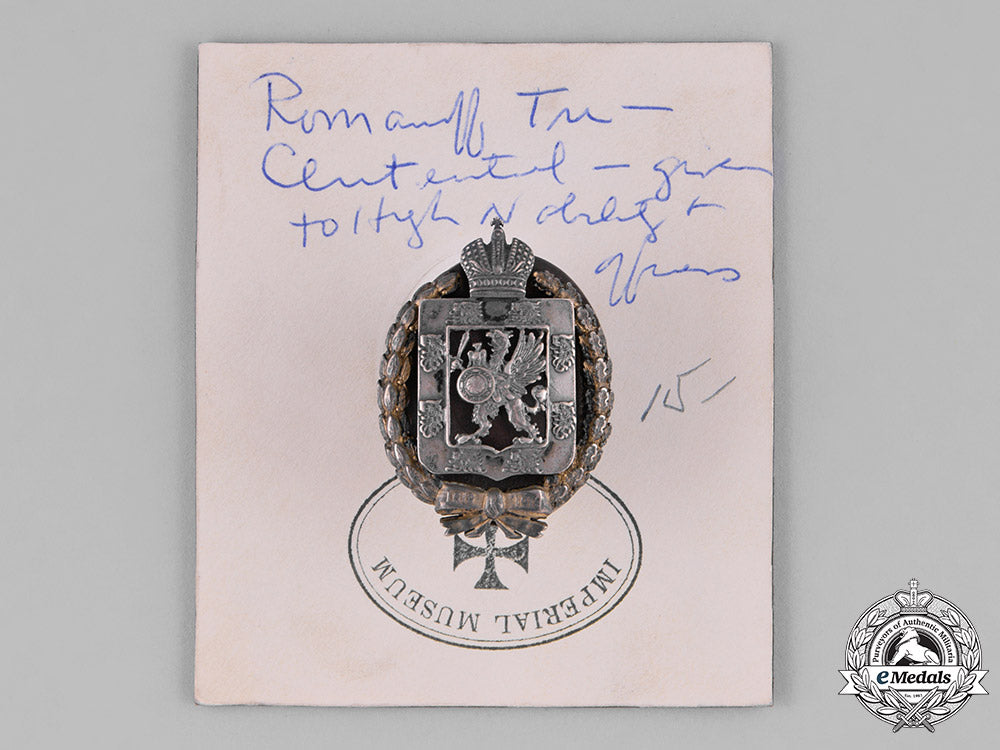 Romanoff Tri-
Centential - given
to High Nobility +
offices
15-
IMPERIAL MUSEUM
Purveyors of Authentic Militaria
eMedals
Est. 1967